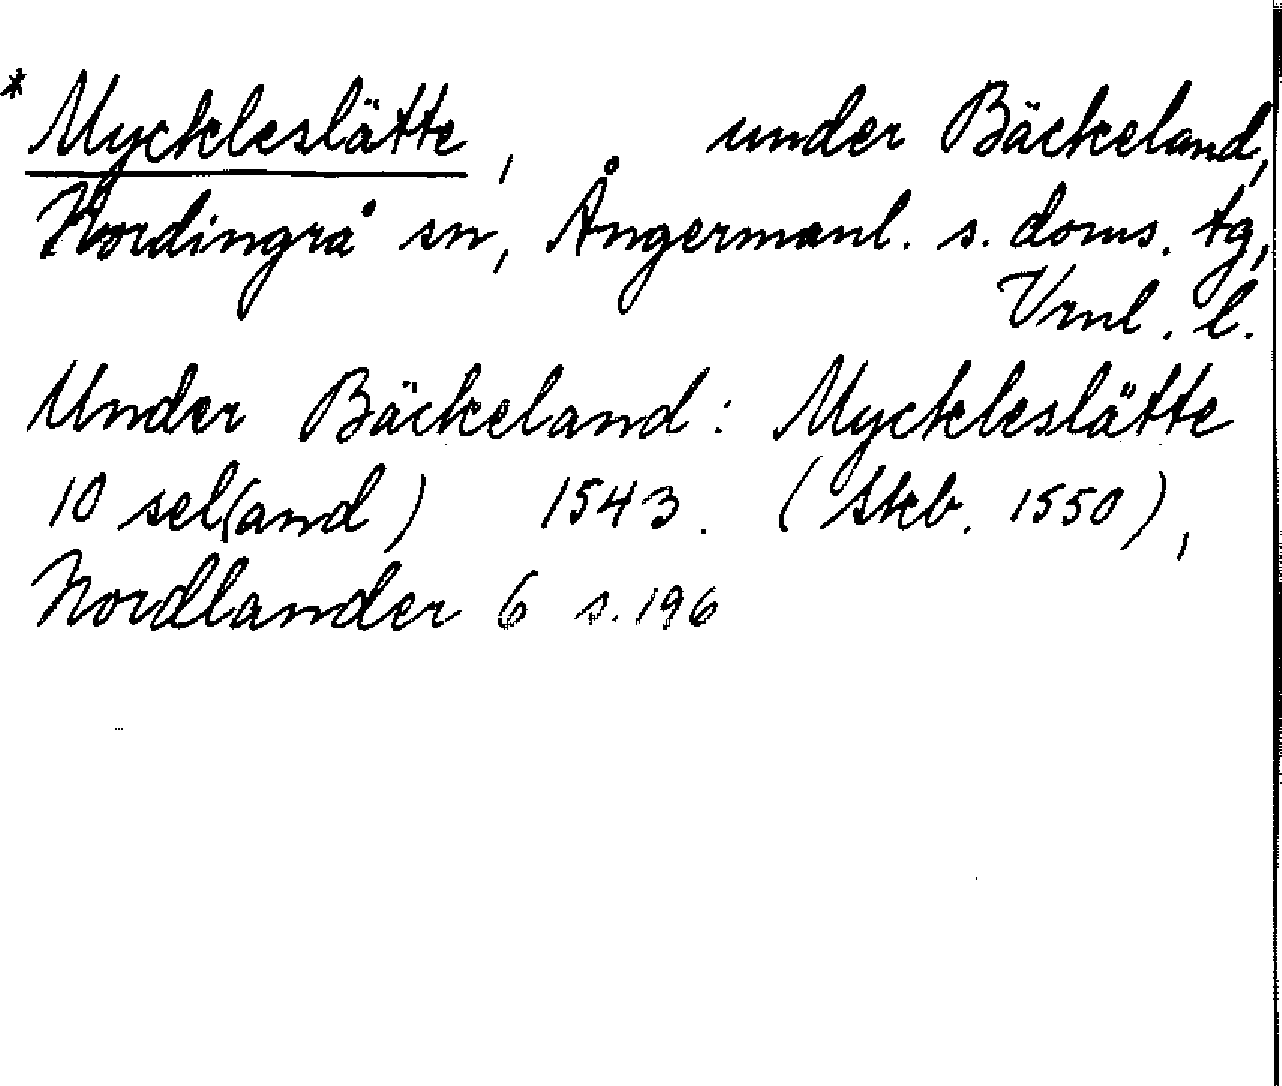 * Myckleslätte, under Bäckeland,
Nordingrå sn, Ångermanl. s. doms. tg,
Vrnl. l.
Under Bäckeland: Myckleslätte
10 sel(and) 1543. (Skb. 1550),
Nordlander 6 s. 196